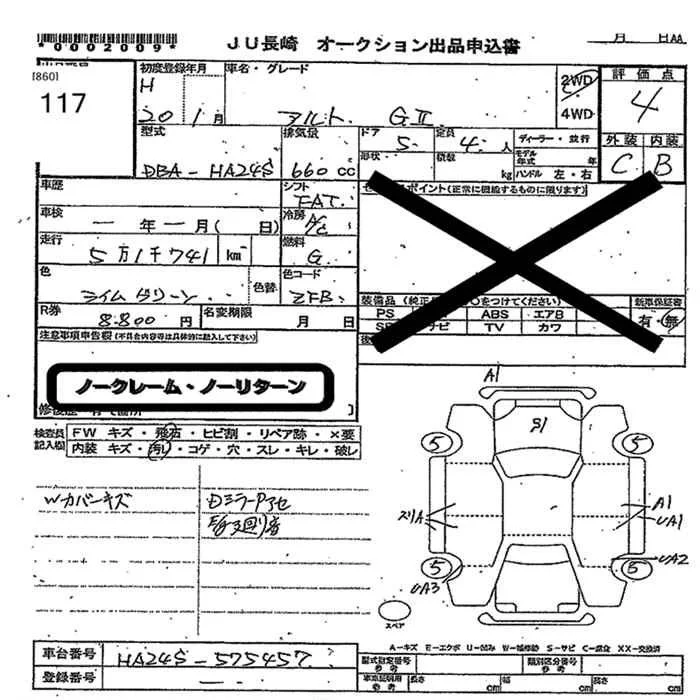 *0002009*
JU長崎 オークション出品申込書
月 日AA
[860]
117
初度登録年月
H
20 1月
車名・グレード
アルト GⅡ
2WD
4WD
評価点
4
外装 内装
C B
型式
DBA-HA24S
排気量
660 cc
ドア
5
定員
4 人
ディーラー・並行
形状
積載
kg
モデル年式 年
ハンドル 左・右
車歴
シフト
FAT
車検
ー年ー月( 日)
冷房
A/C
走行
5万1千741 km
燃料
G
色
ライムグリーン
色替
色コード
ZFB
R券
8.800 円
名変期限
月 日
ポイント(正常に機能するものに限ります)
装備品(純正 ○をつけてください)
PS ABS エアB
TV カワ
新車保証書
有・無
注意事項申告欄(不具合内容等は具体的に記入して下さい)
ノークレーム・ノーリターン
検査員記入欄
FW キズ・飛石・ヒビ割・リペア跡・×要
内装 キズ・汚れ・コゲ・穴・スレ・キレ・破レ
Wカバーキズ
DミラーPアセ
A1
5 5
A1
UA1
UA2
5 5
UA3
スペア
A-キズ E-エクボ U-凹み W-補修跡 S-サビ C-腐食 XX-交換済
車台番号
HA24S-575457
登録番号
型式指定番号 参考
類別区分番号 参考
長さ cm 幅 cm 高さ cm